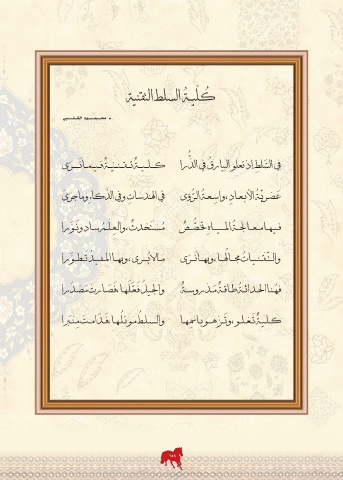 كُليةُ السلط التقنية
د. محمود الشلبي
في السَّلطِ إذ تعلو البيارقُ في الذُّرا
كليةٌ تقنيةٌ فيما أرى
عَصريّةُ الأبعادِ، واسعةُ الرُّؤى
في الهندساتِ وفي الذكاءِ، وما جرى
فيها معالجةُ المياهِ تخصُّصٌ
مُستحدثٌ، والعلمُ سادَ ونَوَّرا
والتّقنياتُ مجالُها، وبها نرى
مالا يُرى، وبها المفيدُ تطوّرا
فهُنا الحداثةُ طاقةٌ مدروسةٌ
والجيلُ فعّلها، فصارت مَصدرا
كليةٌ تعلو، وتزهو باسمِها
والسلطُ موئلُها، فدامت منبرا